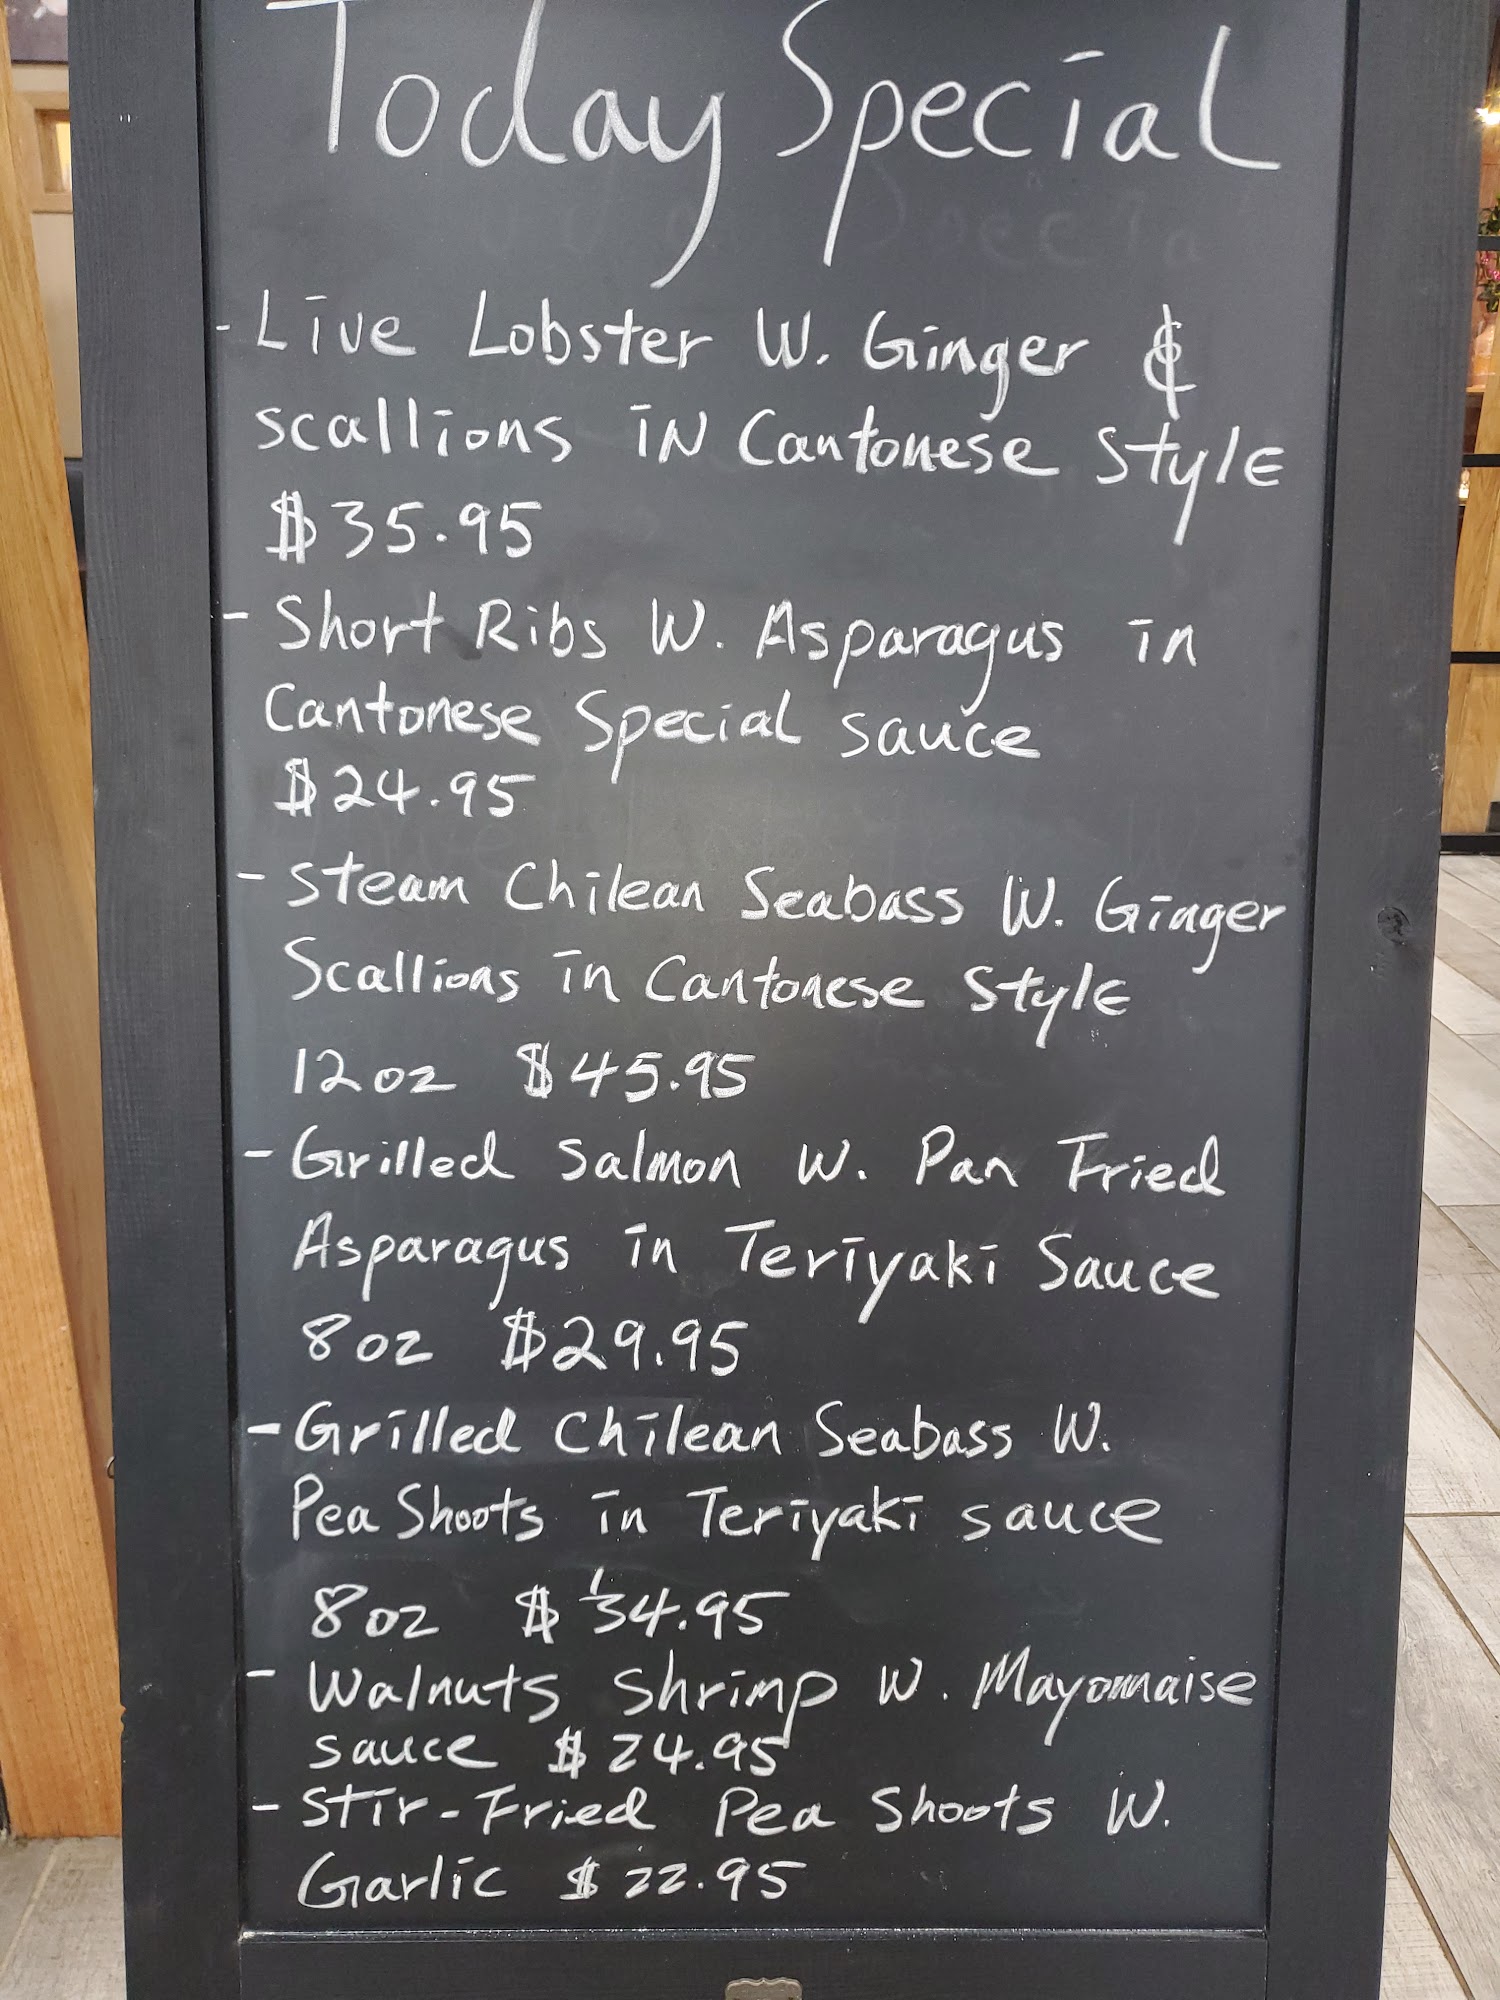 Today Special
- Live Lobster W. Ginger &
scallions in Cantonese Style
$35.95
- Short Ribs W. Asparagus in
Cantonese Special sauce
$24.95
- Steam Chilean Seabass W. Ginger
Scallions in Cantonese Style
12oz $45.95
- Grilled Salmon W. Pan Fried
Asparagus in Teriyaki Sauce
8oz $29.95
- Grilled Chilean Seabass W.
Pea Shoots in Teriyaki sauce
8oz $34.95
- Walnuts Shrimp W. Mayonnaise
sauce $24.95
- Stir-Fried Pea Shoots W.
Garlic $22.95